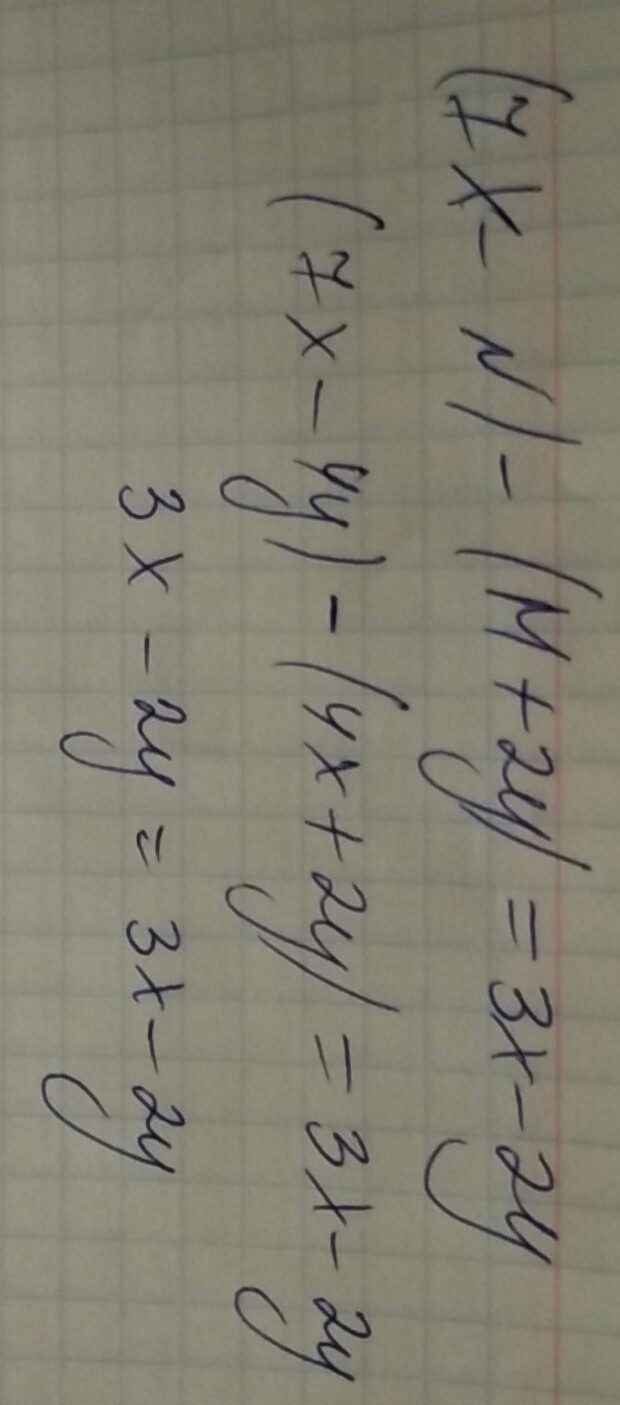 (7x - N) - (M + 2y) = 3x - 2y
(7x - 4y) - (4x + 2y) = 3x - 2y
3x - 2y = 3x - 2y